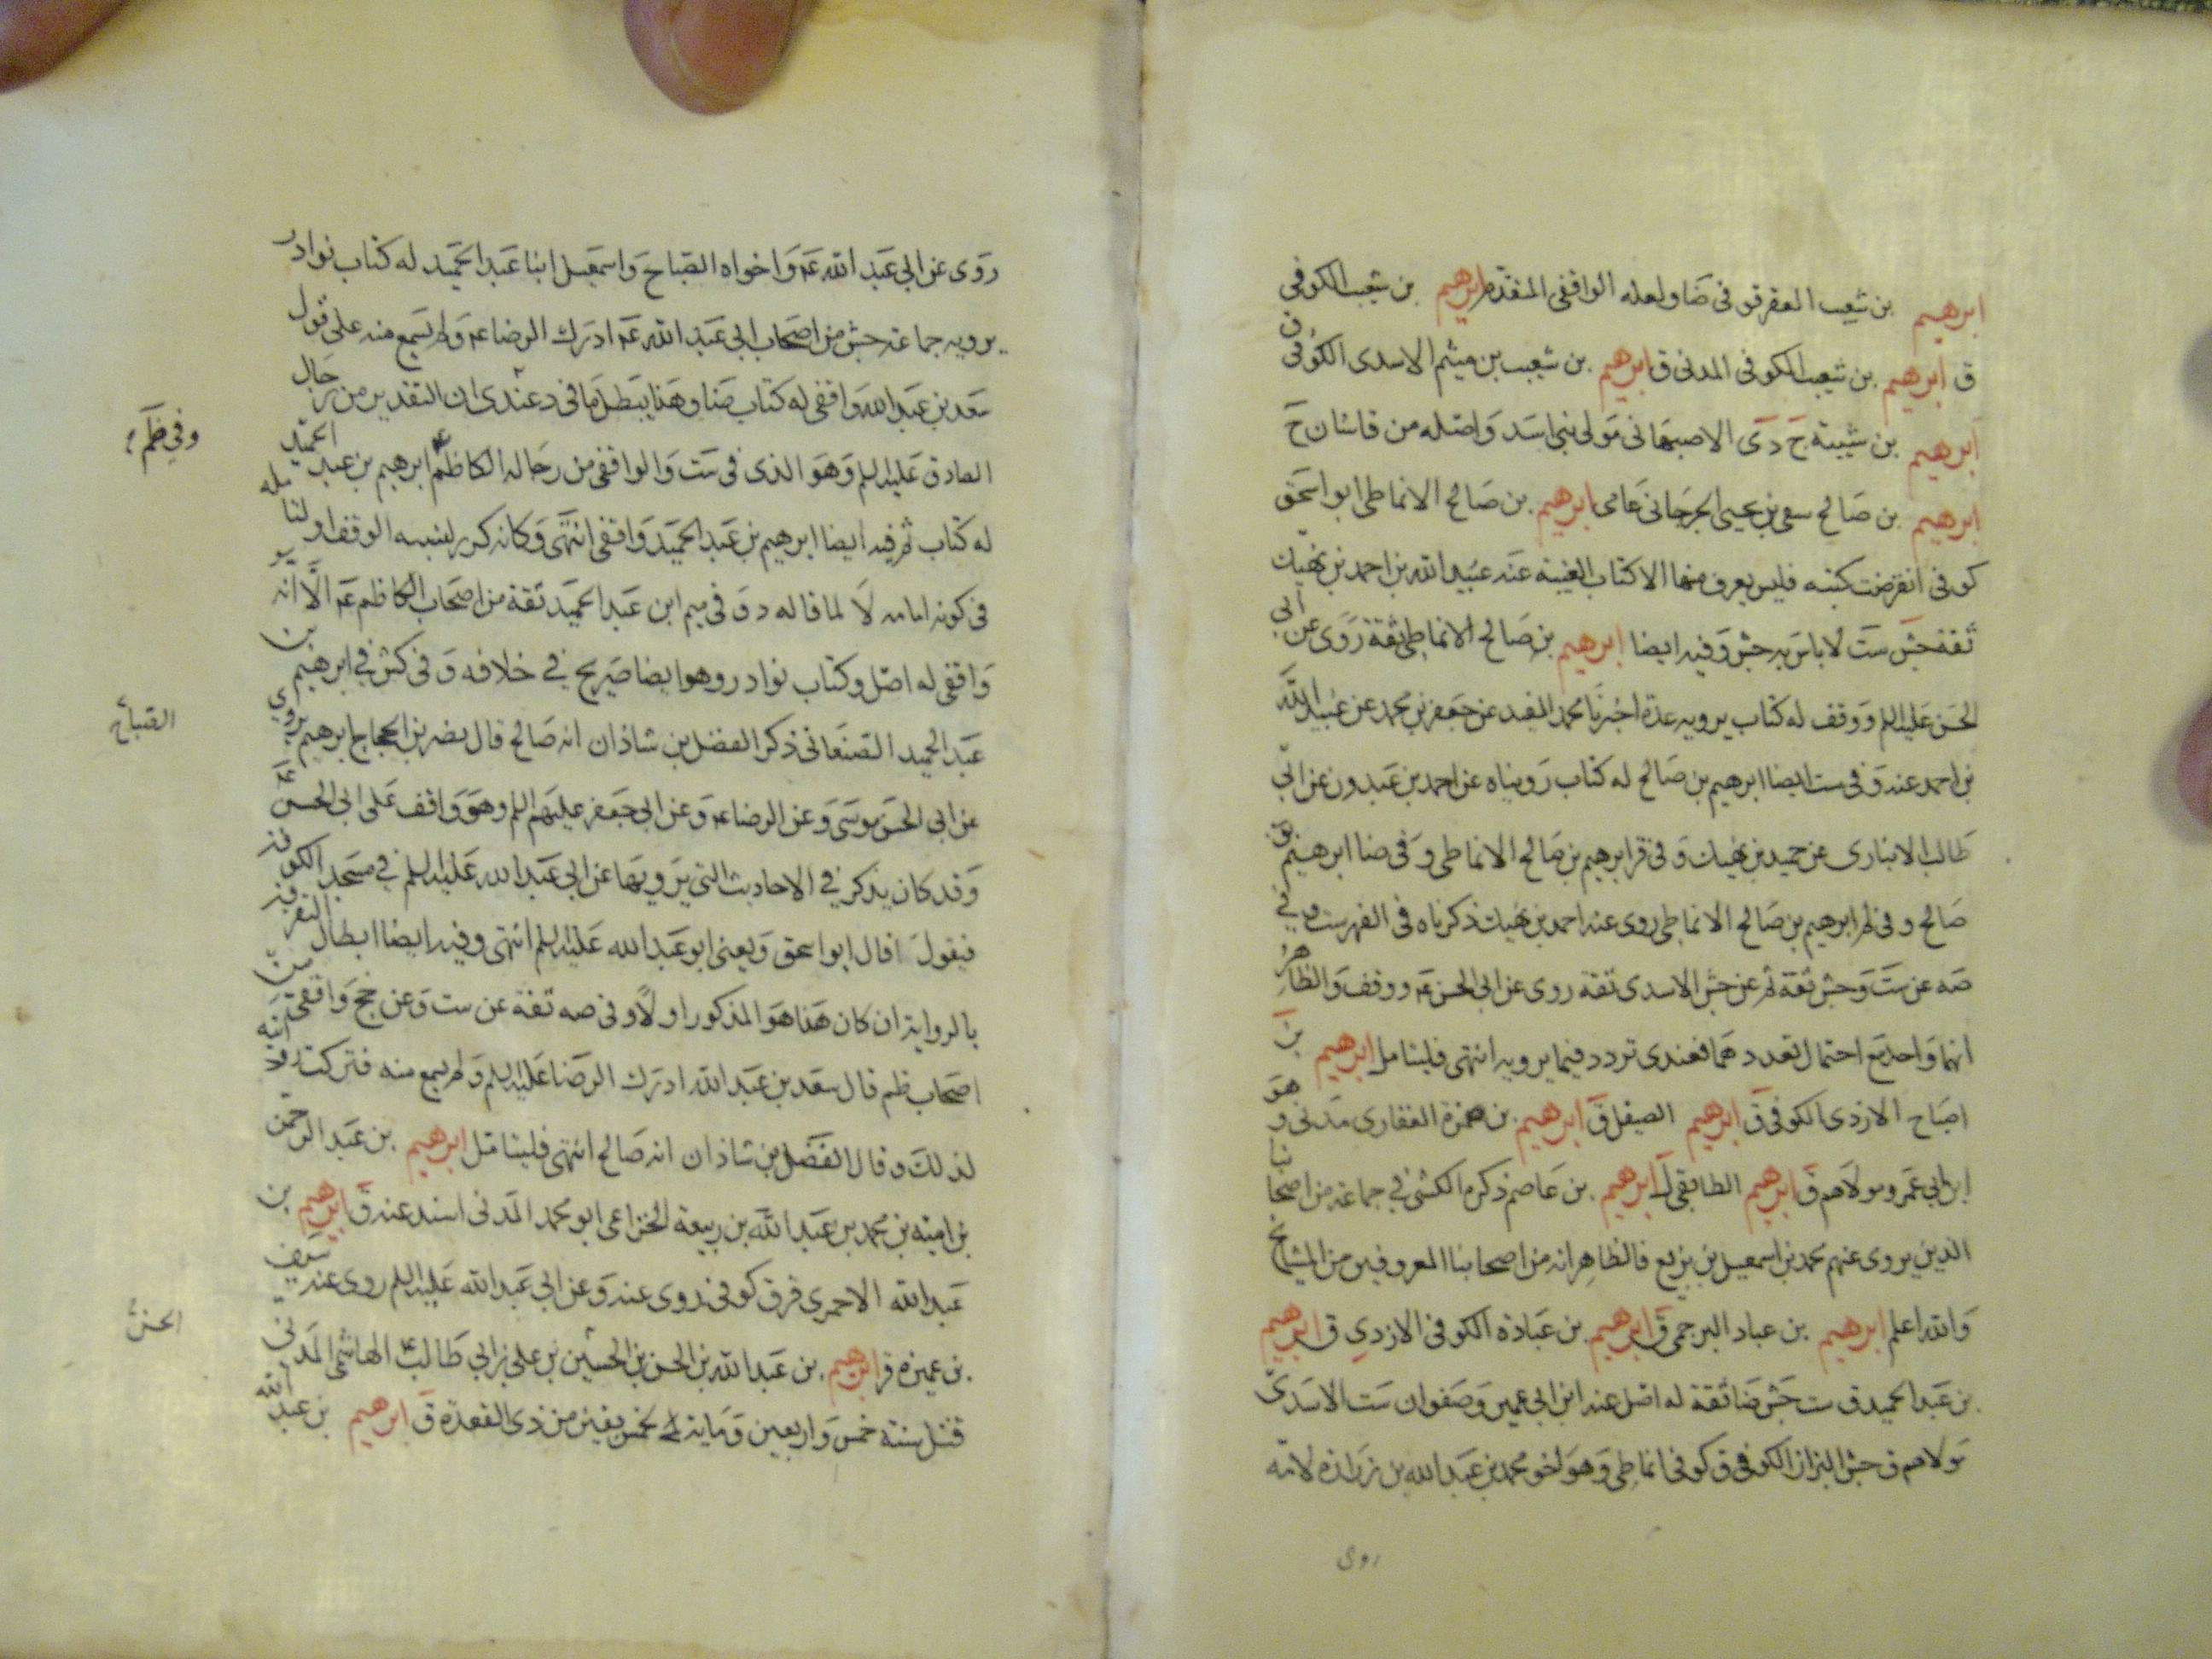 ابرهيم بن شعيب العقرقو فى ضا ولعله الواقفى المتقدم ابرهيم بن شعيب الكوفى
ق ابرهيم بن شعيب الكوفى المدنى ق ابرهيم بن شعيب بن ميثم الاسدى الكوفى ق
ابرهيم بن شيبة ج دى الاصبهانى مولى بنى اسد واصله من قاشان ج
ابرهيم بن صالح بن يحيى الجرجانى عامى ابرهيم بن صالح الانماطى ابو اسحق
كوفى انقرضت كتبه فليس يعرف منها الا كتاب الغيبة عنه عبيد الله بن احمد بن نهيك
ثقة جش ست لا باس به جش وفيه ايضا ابرهيم بن صالح الانماطى ثقة روى عن ابى
الحسن عليه السلم ووقف له كتاب يرويه عدة اخبرنا محمد المفيد عن جعفر بن محمد عن عبيد الله
بن احمد عنه وفى ست ايضا ابرهيم بن صالح له كتاب رويناه عن احمد بن عبدون عن ابى
طالب الانبارى عن حميد بن نهيك وفى قر ابرهيم بن صالح الانماطى وفى ضا ابرهيم بن
صالح وفى لم ابرهيم بن صالح الانماطى روى عنه احمد بن نهيك ذكرناه فى الفهرست وفي
صه عن ست وجش ثقة ثم عن جش الاسدى ثقة روى عن ابى الحسن ع ووقف والظاهر
انهما واحد مع احتمال تعددهما فعندى تردد فيما يرويه انتهى فليتامل ابرهيم بن
اصباح الازدى الكوفى ق ابرهيم الصيقل ق ابرهيم بن ضمرة الغفارى مدنى وهو
ابن ابى عمرو مولاهم ق ابرهيم الطائفى ل ابرهيم بن عاصم ذكره الكشى في جماعة من اصحابنا
الذين يروى عنهم محمد بن اسمعيل بن بزيع فالظاهر انه من اصحابنا المعروفين من المشايخ
والله اعلم ابرهيم بن عباد البرجمى ق ابرهيم بن عبادة الكوفى الازدي ق ابرهيم
بن عبد الحميد ق ست جش ضا ثقة له اصل عنه ابن ابى عمير وصفوان ست الاسدى
مولاهم ق جش البزاز الكوفى ق كوفى انماطى وهو اخو محمد بن عبد الله بن زرارة لامه
روى
روى عن ابى عبد الله ع واخواه الصباح واسمعيل ابنا عبد الحميد له كتاب نوادر
يرويه جماعة جش من اصحاب ابى عبد الله ع ادرك الرضا ع ولم يسمع منه على قول
سعد بن عبد الله واقفى له كتاب ضا وهذا يبطل ما فى د عندى ان الثقة من رجال
الصادق عليه السلم وهو الذى فى ست والواقفى من رجاله الكاظم ع ابرهيم بن عبد الحميد
وفي ظم
له كتاب ثم فيه ايضا ابرهيم بن عبد الحميد واقفى انتهى وكانه كرر لنسبه الوقف اولنا مله
فى كونه امامه لا لما قاله د وفى ميم ابن عبد الحميد ثقة من اصحاب الكاظم ع الا انه
واقفى له اصل وكتاب نوادر وهو ايضا صريح في خلافه وفى كش في ابرهيم بن
عبد الحميد الصنعانى ذكر الفضل بن شاذان انه صالح قال نصر بن الحجاج ابرهيم يروي
الصباح
عن ابى الحسن موسى وعن الرضا ع وعن ابى جعفر عليهم السلم وهو واقف على ابى الحسن ع
وقد كان يذكر في الاحاديث التى يرويها عن ابى عبد الله عليه السلم في مسجد الكوفة
فيقول قال ابو اسحق ويعنى ابو عبد الله عليه السلم انتهى وفيه ايضا ابطال التفرقة
بالرواية ان كان هذا هو المذكور اولا وفى صه ثقة عن ست وعن جخ واقفى من
اصحاب ظم قال سعد بن عبد الله ادرك الرضا عليه السلم ولم يسمع منه فتركت روايته
لذلك وقال الفضل بن شاذان انه صالح انتهى فليتامل ابرهيم بن عبد الرحمن
بن امية بن محمد بن عبد الله بن ربيعة الخزاعى ابو محمد المدنى اسند عنه ق ابرهيم بن
عبد الله الاحمرى قر ق كوفى روى عنه وعن ابى عبد الله عليه السلم روى عنه سيف
بن عميرة قر ابرهيم بن عبد الله بن الحسن بن الحسين بن على بن ابي طالب ع الهاشمى المدنى
الحسن
قتل سنة خمس واربعين ومايه لخمس بقين من ذى القعدة ق ابرهيم بن عبد الله